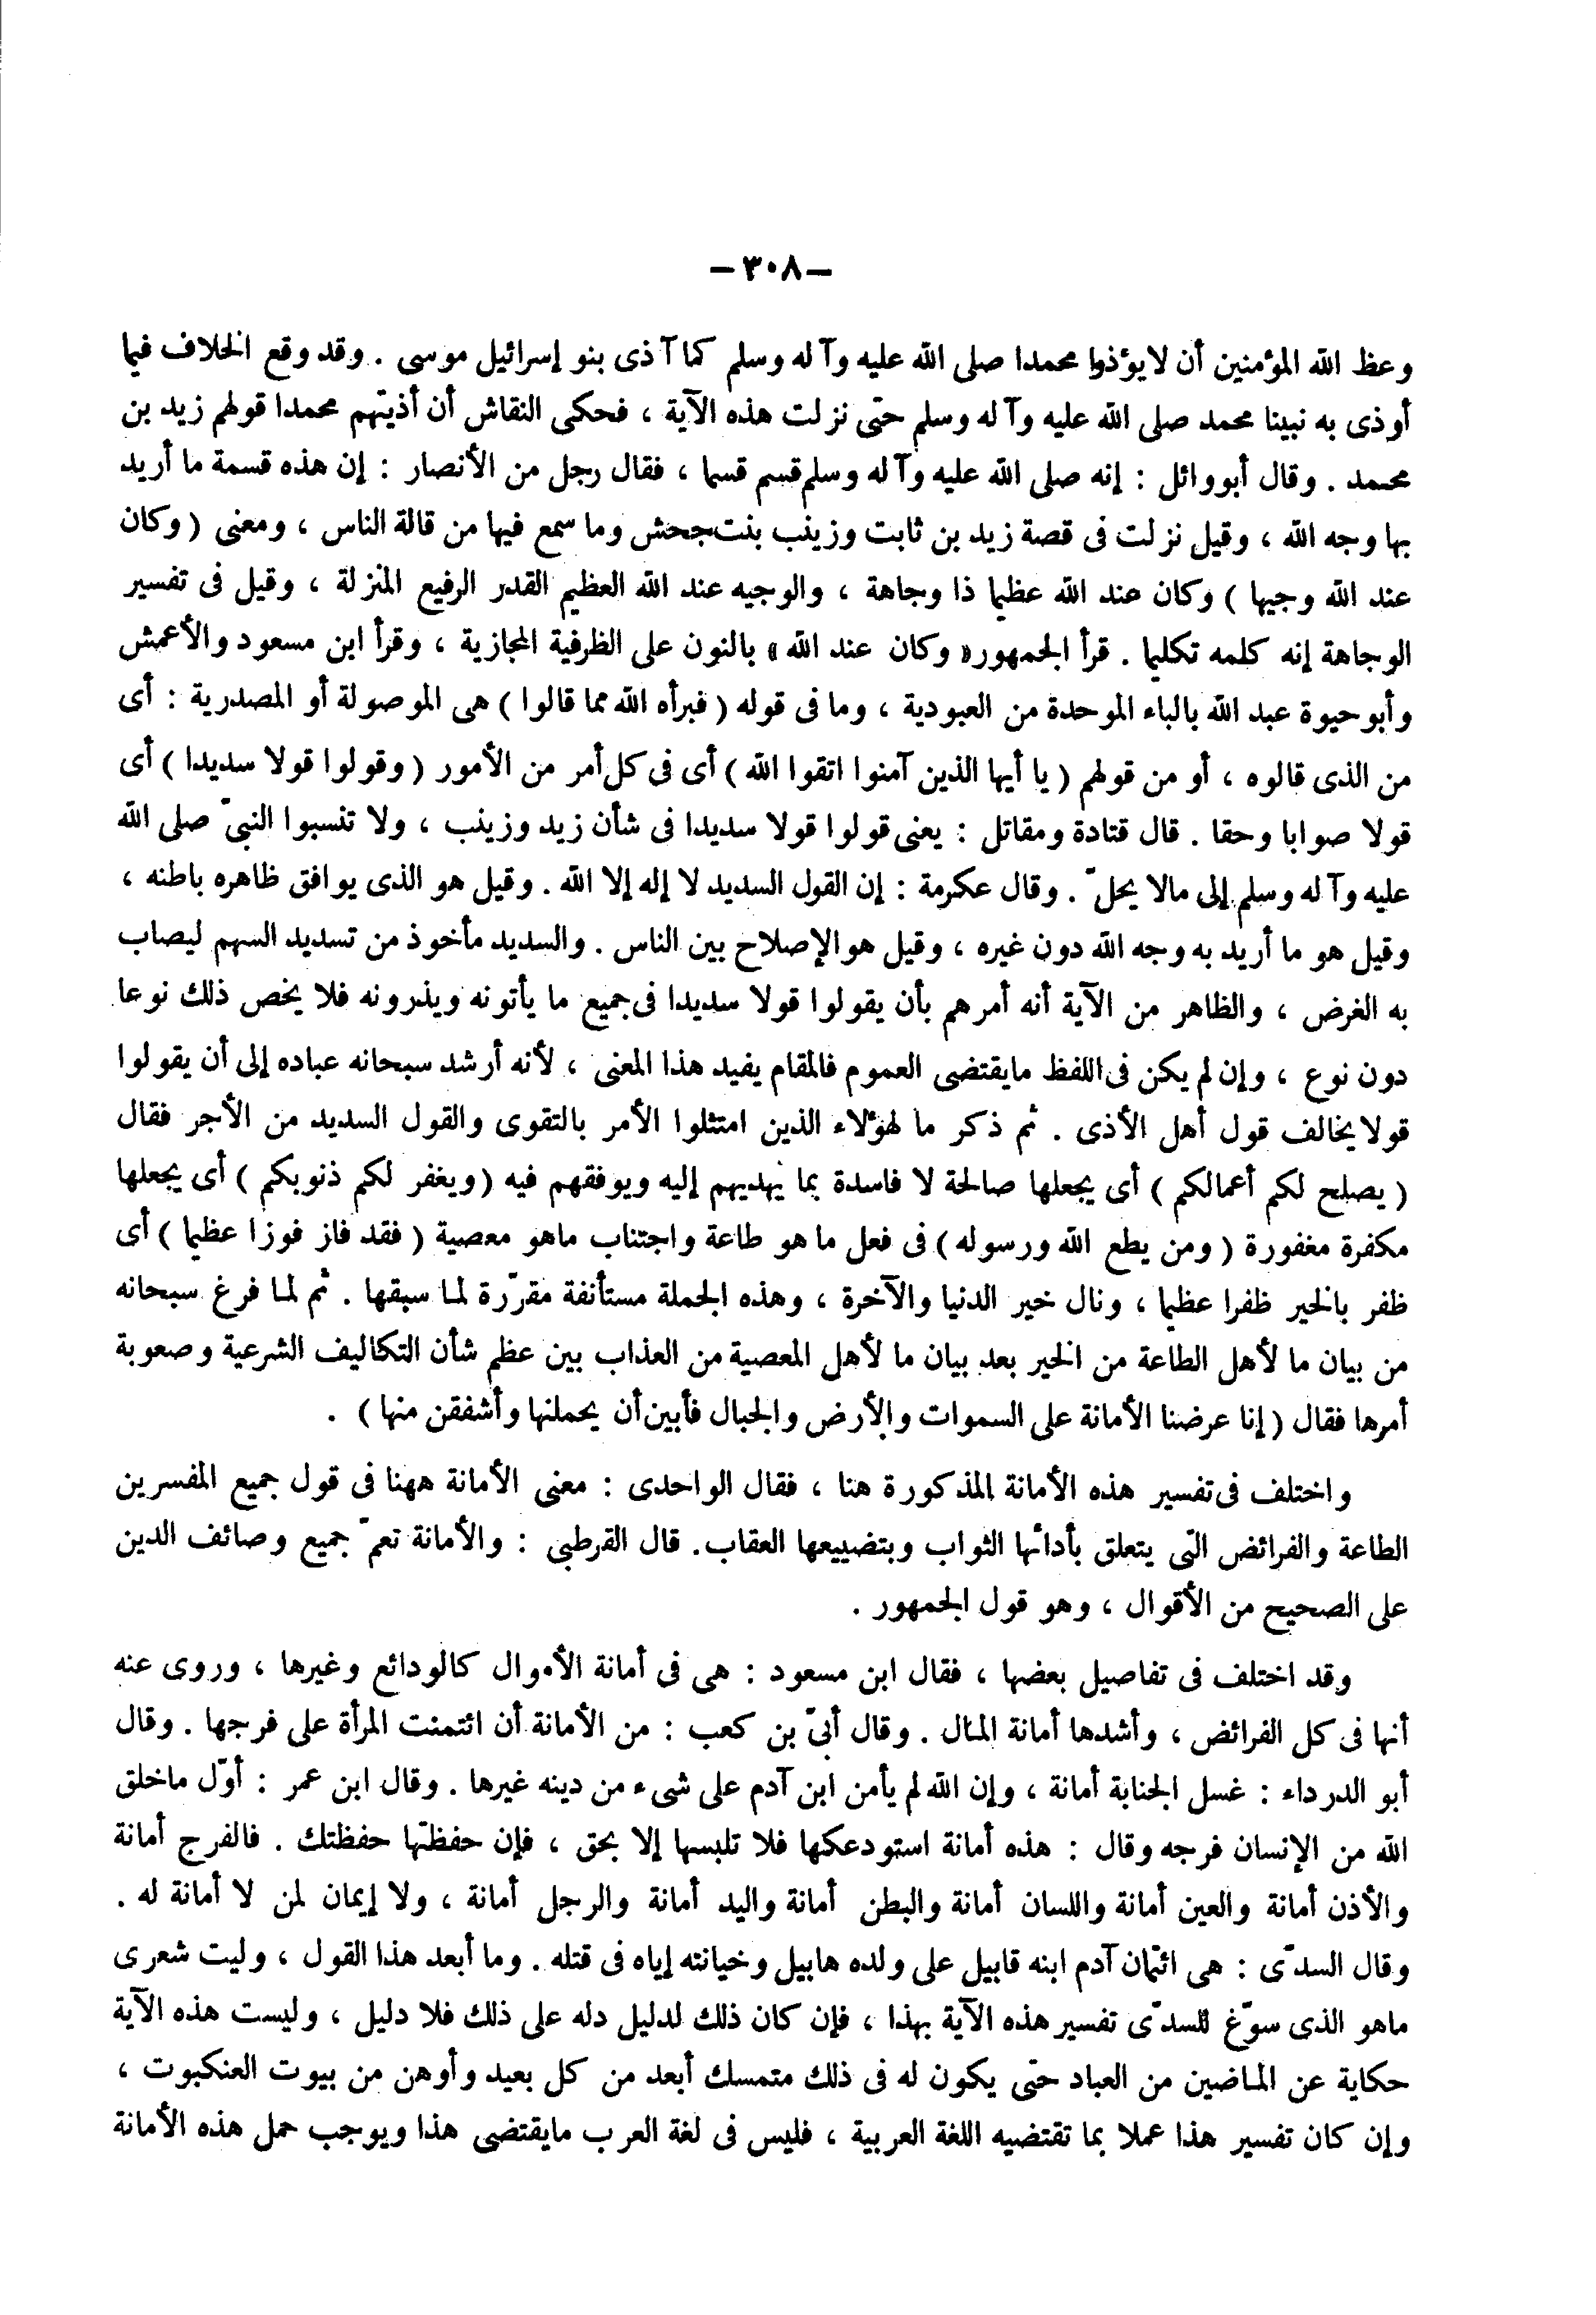 — ٣٠٨ —
وعظ الله المؤمنين أن لا يؤذوا محمدا صلى الله عليه وآله وسلم كما آذى بنو إسرائيل موسى . وقد وقع الخلاف فيما
أوذى به نبينا محمد صلى الله عليه وآله وسلم حتى نزلت هذه الآية ، فحكى النقاش أن أذيتهم محمدا قولهم زيد بن
محمد . وقال أبو وائل : إنه صلى الله عليه وآله وسلم قسم قسما ، فقال رجل من الأنصار : إن هذه قسمة ما أريد
بها وجه الله ، وقيل نزلت فى قصة زيد بن ثابت وزينب بنت جحش وما سمع فيها من قالة الناس ، ومعنى ( وكان
عند الله وجيها ) وكان عند الله عظيما ذا وجاهة ، والوجيه عند الله العظيم القدر الرفيع المنزلة ، وقيل فى تفسير
الوجاهة إنه كلمه تكليما . قرأ الجمهور « وكان عند الله » بالنون على الظرفية المجازية ، وقرأ ابن مسعود والأعمش
وأبو حيوة عبد الله بالباء الموحدة من العبودية ، وما فى قوله ( فبرأه الله مما قالوا ) هى الموصولة أو المصدرية : أى
من الذى قالوه ، أو من قولهم ( يا أيها الذين آمنوا اتقوا الله ) أى فى كل أمر من الأمور ( وقولوا قولا سديدا ) أى
قولا صوابا وحقا . قال قتادة ومقاتل : يعنى قولوا قولا سديدا فى شأن زيد وزينب ، ولا تنسبوا النبىّ صلى الله
عليه وآله وسلم إلى مالا يحلّ . وقال عكرمة : إن القول السديد لا إله إلا الله . وقيل هو الذى يوافق ظاهره باطنه ،
وقيل هو ما أريد به وجه الله دون غيره ، وقيل هو الإصلاح بين الناس . والسديد مأخوذ من تسديد السهم ليصاب
به الغرض ، والظاهر من الآية أنه أمرهم بأن يقولوا قولا سديدا فى جميع ما يأتونه ويذرونه فلا يخص ذلك نوعا
دون نوع ، وإن لم يكن فى اللفظ مايقتضى العموم فالمقام يفيد هذا المعنى ، لأنه أرشد سبحانه عباده إلى أن يقولوا
قولا يخالف قول أهل الأذى . ثم ذكر ما لهؤلاء الذين امتثلوا الأمر بالتقوى والقول السديد من الأجر فقال
( يصلح لكم أعمالكم ) أى يجعلها صالحة لا فاسدة بما يهديهم إليه ويوفقهم فيه ( ويغفر لكم ذنوبكم ) أى يجعلها
مكفرة مغفورة ( ومن يطع الله ورسوله ) فى فعل ما هو طاعة واجتناب ماهو معصية ( فقد فاز فوزا عظيما ) أى
ظفر بالخير ظفرا عظيما ، ونال خير الدنيا والآخرة ، وهذه الجملة مستأنفة مقرّرة لما سبقها . ثم لما فرغ سبحانه
من بيان ما لأهل الطاعة من الخير بعد بيان ما لأهل المعصية من العذاب بين عظم شأن التكاليف الشرعية وصعوبة
أمرها فقال ( إنا عرضنا الأمانة على السموات والأرض والجبال فأبين أن يحملنها وأشفقن منها ) .
واختلف فى تفسير هذه الأمانة المذكورة هنا ، فقال الواحدى : معنى الأمانة ههنا فى قول جميع المفسرين
الطاعة والفرائض التى يتعلق بأدائها الثواب وبتضييعها العقاب. قال القرطبى : والأمانة تعمّ جميع وصائف الدين
على الصحيح من الأقوال ، وهو قول الجمهور .
وقد اختلف فى تفاصيل بعضها ، فقال ابن مسعود : هى فى أمانة الأموال كالودائع وغيرها ، وروى عنه
أنها فى كل الفرائض ، وأشدها أمانة المال . وقال أبىّ بن كعب : من الأمانة أن ائتمنت المرأة على فرجها . وقال
أبو الدرداء : غسل الجنابة أمانة ، وإن الله لم يأمن ابن آدم على شىء من دينه غيرها . وقال ابن عمر : أوّل ماخلق
الله من الإنسان فرجه وقال : هذه أمانة استودعكها فلا تلبسها إلا بحق ، فإن حفظتها حفظتك . فالفرج أمانة
والأذن أمانة والعين أمانة واللسان أمانة والبطن أمانة واليد أمانة والرجل أمانة ، ولا إيمان لمن لا أمانة له .
وقال السدّى : هى ائتمان آدم ابنه قابيل على ولده هابيل وخيانته إياه فى قتله . وما أبعد هذا القول ، وليت شعرى
ماهو الذى سوّغ للسدّى تفسير هذه الآية بهذا ، فإن كان ذلك لدليل دله على ذلك فلا دليل ، وليست هذه الآية
حكاية عن الماضين من العباد حتى يكون له فى ذلك متمسك أبعد من كل بعيد وأوهن من بيوت العنكبوت ،
وإن كان تفسير هذا عملا بما تقتضيه اللغة العربية ، فليس فى لغة العرب مايقتضى هذا ويوجب حمل هذه الأمانة